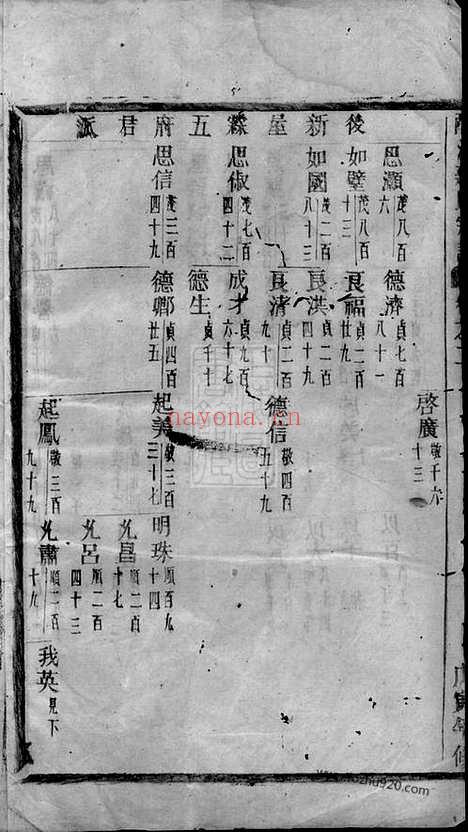 啓廣 敬千六十三
思灝 茂八百六 德濟 貞七百八十一
後 如璧 茂八百十三 良福 貞二百廿九
新 如國 茂二百八十三 良洪 貞二百四十九
屋 良清 貞二百九十 德信 敬四百五十九
思俶 茂七百四十二 成才 貞九百六十七
五 德生 貞千十
府 思信 茂三百四十九 德卿 貞四百廿五 起美 敬三百三十七 明珠 順百九十四
君 允昌 順二百十七
派 允呂 順二百四十三
起鳳 敬三百九十九 允肅 順二百十九 我英 見下
nayona.cn